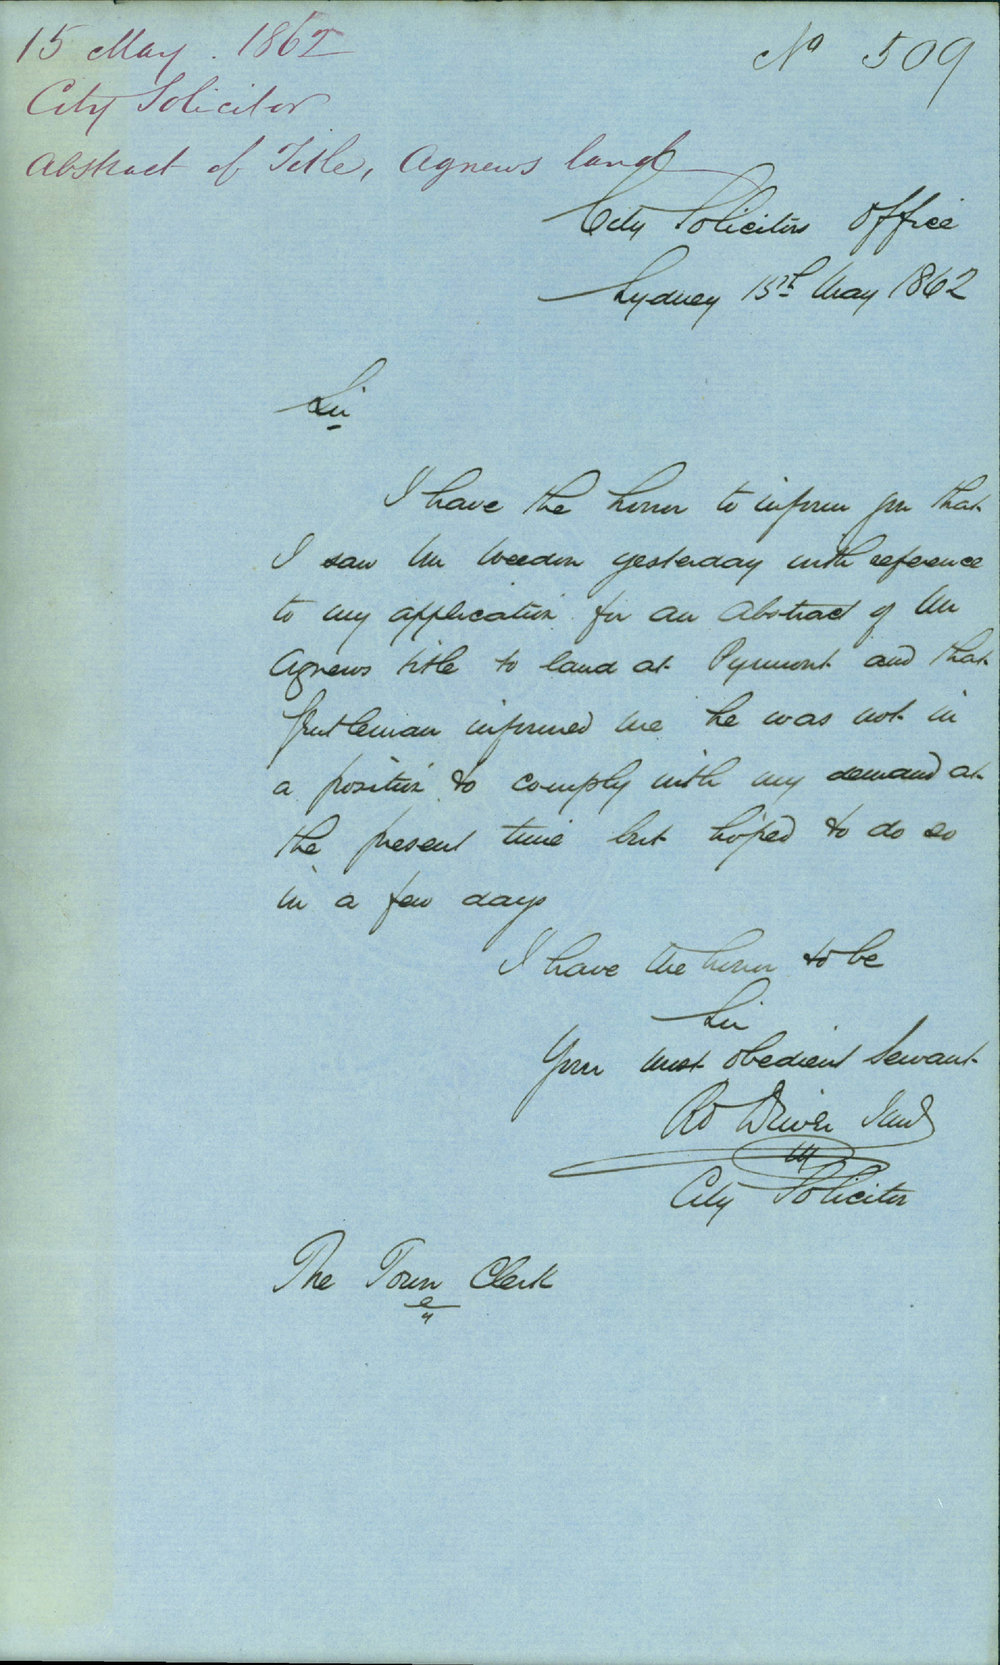 15 May. 1862
No 509
City Solicitor
Abstract of Title, Agnews land
City Solicitors Office
Sydney 15th May 1862
Sir
I have the honor to inform you that
I saw Mr Weedon yesterday with reference
to my application for an Abstract of Mr
Agnews title to land at Pyrmont and that
Gentleman informed me he was not in
a position to comply with my demand at
the present time but hoped to do so
in a few days
I have the honor to be
Sir
Your most obedient Servant
Rd Driver Junr
City Solicitor
The Town Clerk